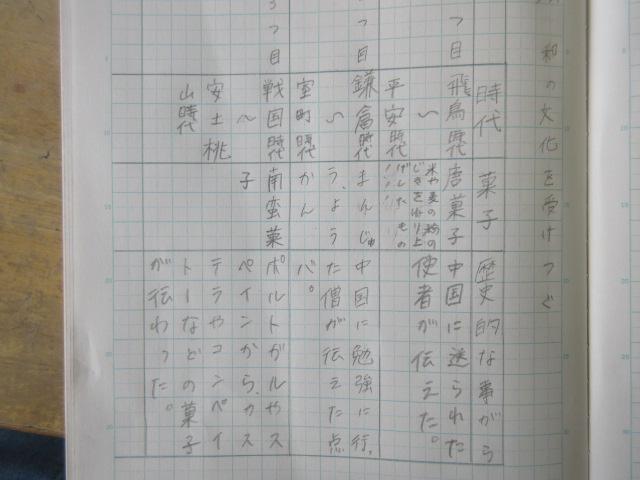 和の文化を受けつぐ
時代
菓子
歴史的な事がら
つ目
飛鳥時代
〜
平安時代
唐菓子
米や麦の粉の
げたもの
中国に送られた
使者が伝えた。
つ目
鎌倉時代
〜
室町時代
まんじゅ
う、よう
かん
中国に勉強に行
た僧が伝えた点
バ。
つ目
戦国時代
〜
安土桃
山時代
南蛮菓
子
ポルトガルやス
ペインから、カス
テラやコンペイ
トーなどの菓子
が伝わった。